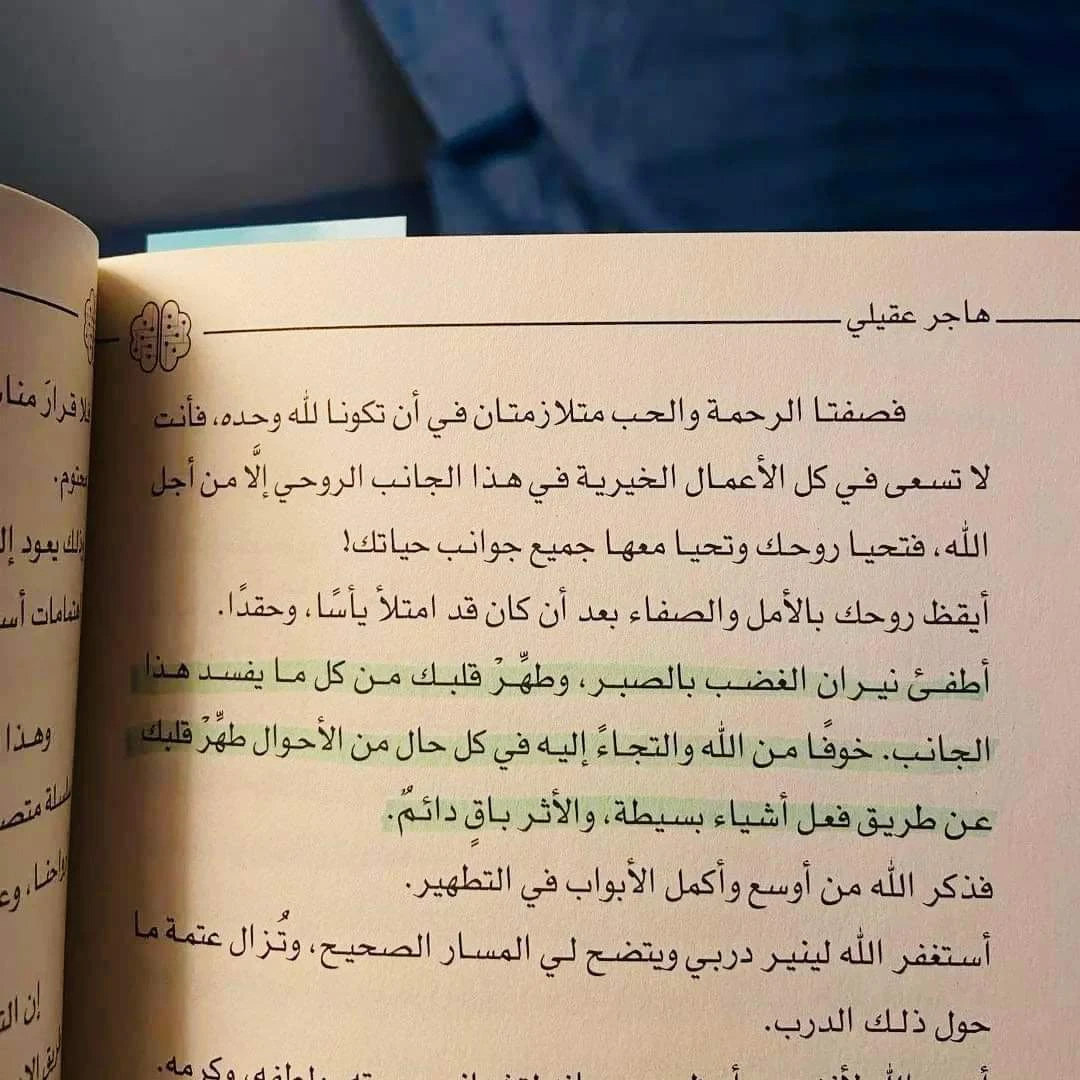 هاجر عقيلي
فصفتا الرحمة والحب متلازمتان في أن تكونا لله وحده، فأنت
لا تسعى في كل الأعمال الخيرية في هذا الجانب الروحي إلَّا من أجل
الله، فتحيا روحك وتحيا معها جميع جوانب حياتك!
أيقظ روحك بالأمل والصفاء بعد أن كان قد امتلأ يأسًا، وحقدًا.
أطفئ نيران الغضب بالصبر، وطهِّرْ قلبك من كل ما يفسد هذا
الجانب. خوفًا من الله والتجاءً إليه في كل حال من الأحوال طهِّرْ قلبك
عن طريق فعل أشياء بسيطة، والأثر باقٍ دائمٌ.
فذكر الله من أوسع وأكمل الأبواب في التطهير.
أستغفر الله لينير دربي ويتضح لي المسار الصحيح، وتُزال عتمة ما
حول ذلك الدرب.
وكرمه.
فلا قرارَ
وذلك يعود
وهذا